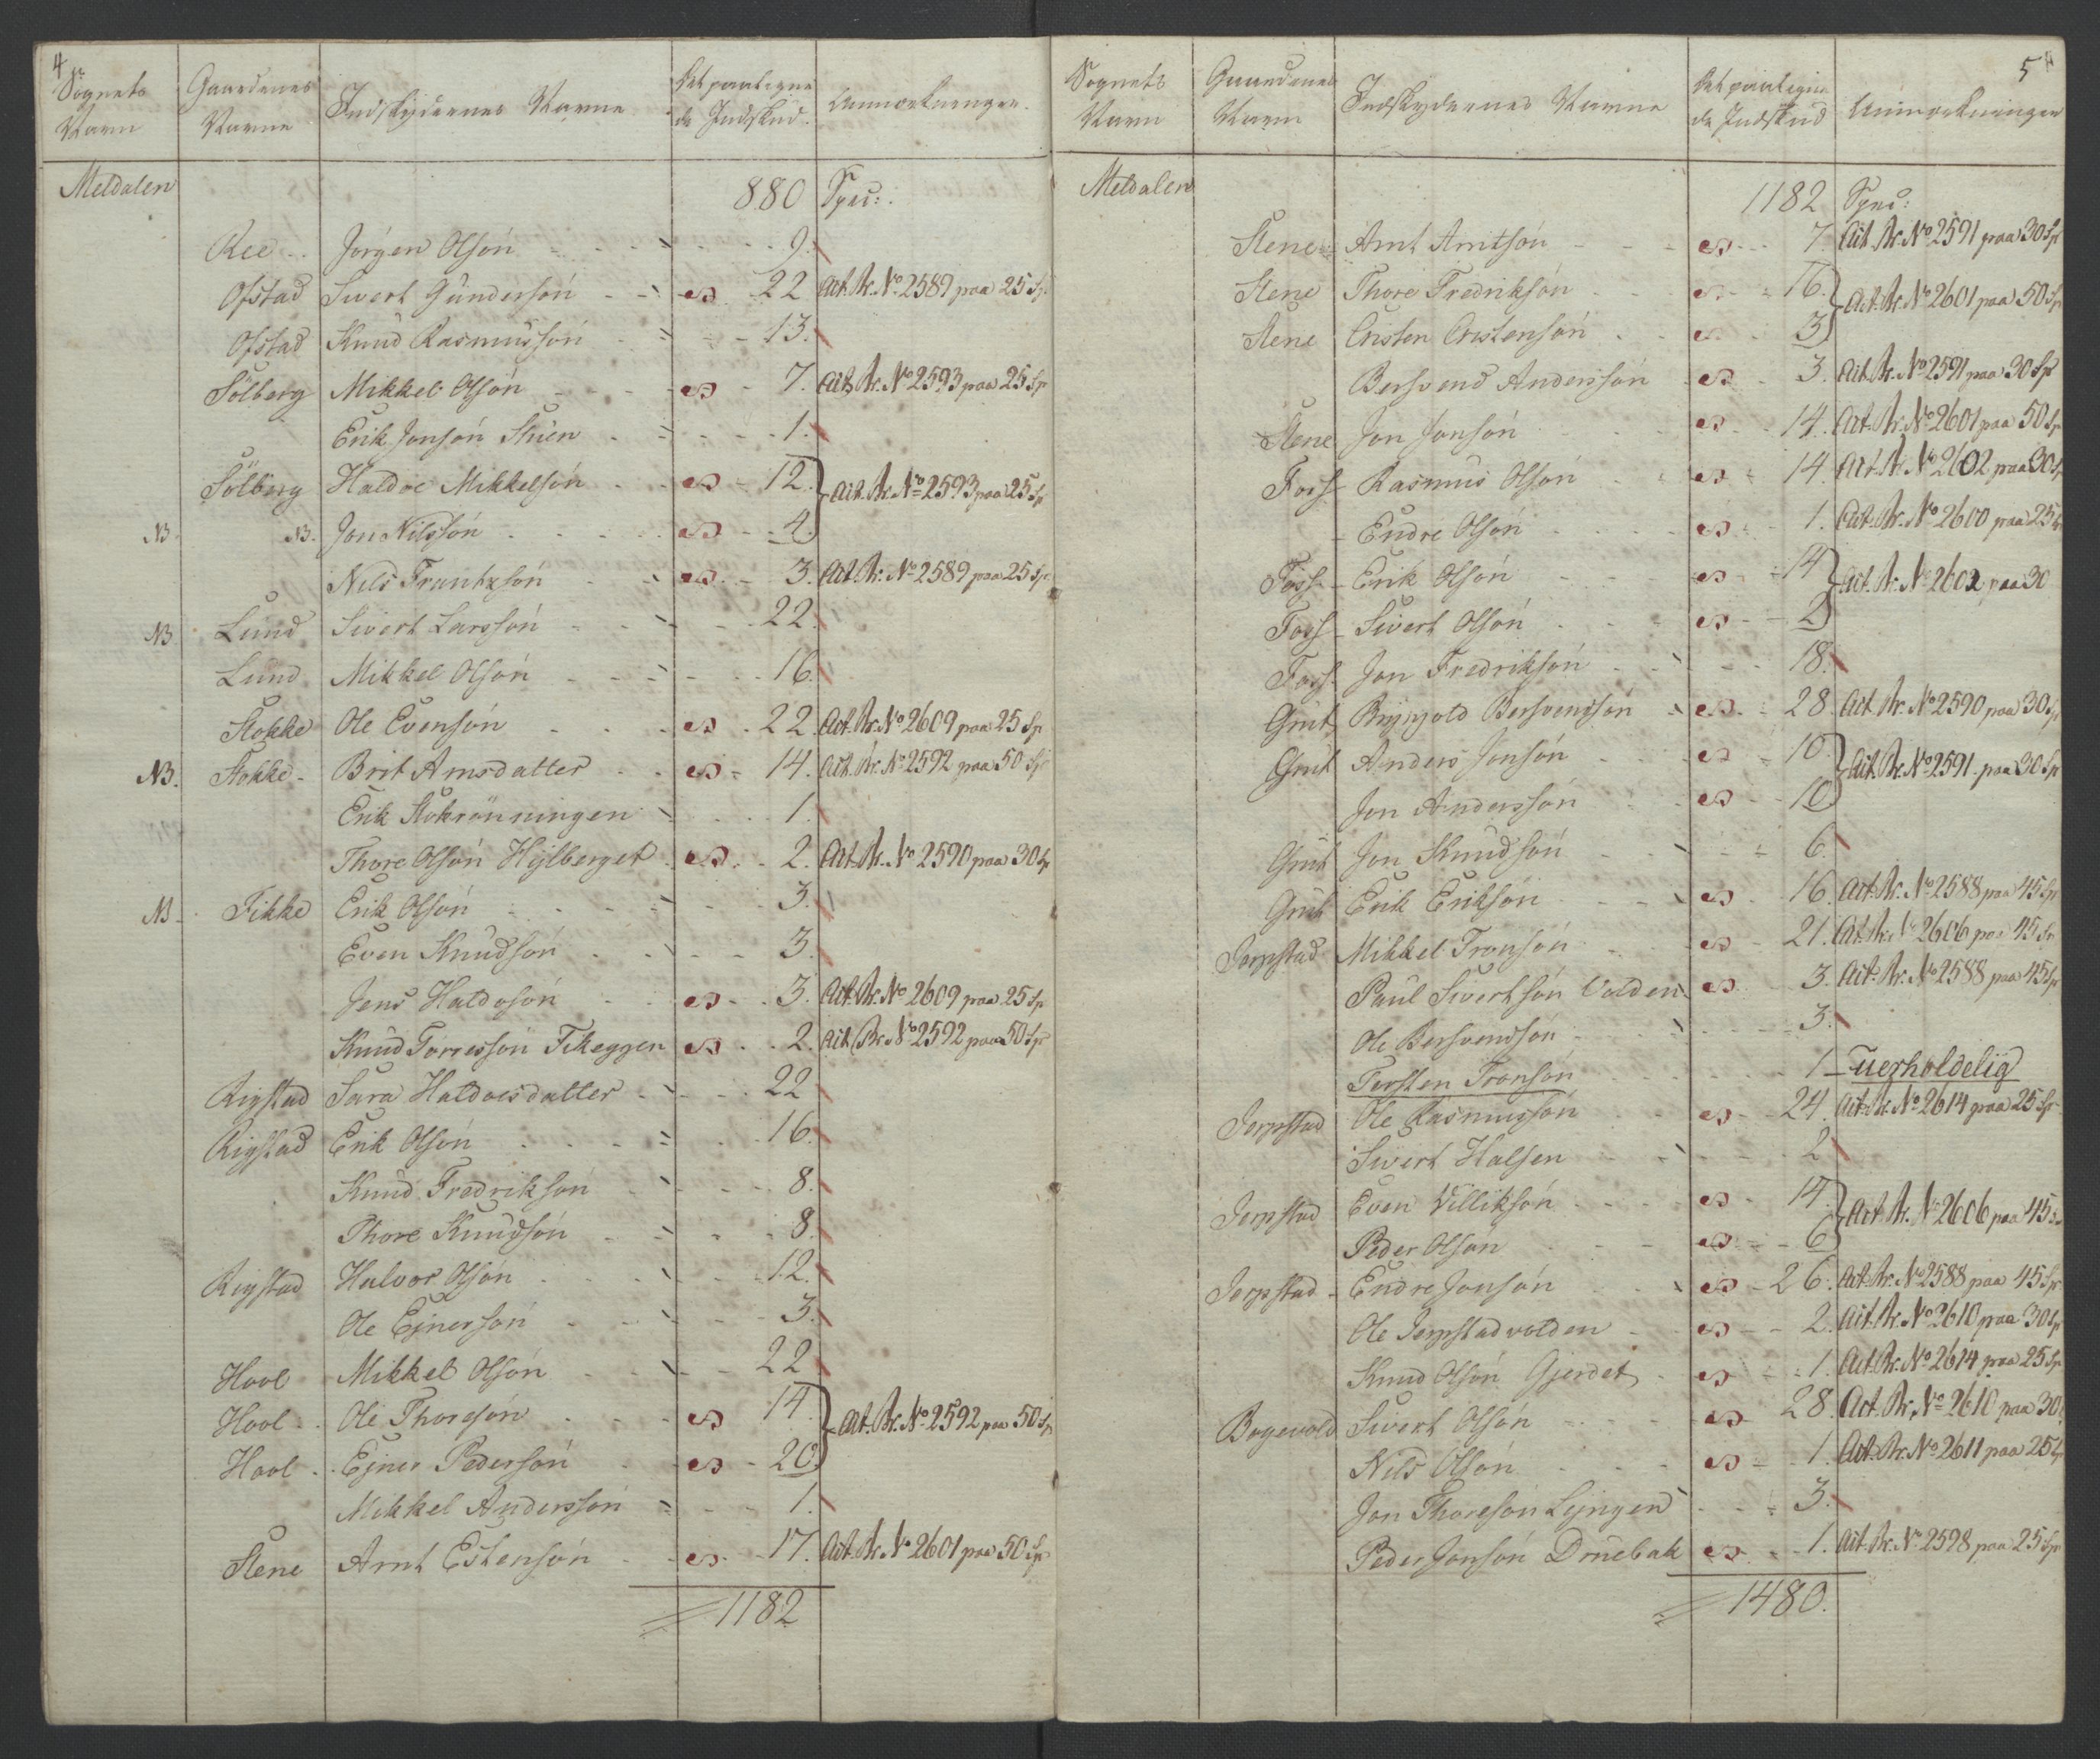 4
Sognets Navn | Gaardenes Navne | Indskydernes Navne | Det paaligne de Indskud | Anmærkninger
Meldalen | 880 | Spec:
Ree | Jørgen Olsön | 9.
Ofstad | Sivert Gundersön | 22 | Act. Br. No 2589 paa 25 Sp
Ofstad | Knud Rasmussön | 13.
Sölberg | Mikkel Olsön | 7. | Act. Br. No 2593 paa 25 Sp
Erik Jonsön Stuen | 1.
Sölberg | Haldoe Mikkelsön | 12. | Act. Br. No 2593 paa 25 Sp
NB. | NB. | Jon Nilssön | 4.
Nils Frantzsön | 3. | Act. Br. No 2589 paa 25 Sp.
NB | Lund | Sivert Larssön | 22.
Lund | Mikkel Olsön | 16.
Stokke | Ole Evensön | 22. | Act. Br. No 2609 paa 25 Sp
NB. | Stokke | Brit Arnsdatter | 14. | Act. Br. No 2592 paa 50 Sp
Erik Stokrönningen | 1.
Thore Olsön Hijlberget | 2. | Act. Br. No 2590 paa 30 Sp
NB | Fikke | Erik Olsön | 3.
Even Knudsön | 3.
Jens Haldosön | 3. | Act. Br. No 2609 paa 25 Sp
Knud Torressön Fikeggen | 2. | Act. Br. No 2592 paa 50 Sp
Rigstad | Sara Haldoesdatter | 22
Rigstad | Erik Olsön | 16.
Knud Fredriksön | 8.
Thore Knudsön | 8.
Rigstad | Halvor Olsön | 12.
Ole Ejnersön | 3.
Hool | Mikkel Olsön | 22
Hool | Ole Thoresön | 14. | Act. Br. No 2592 paa 50 Sp
Hool | Ejner Pedersön | 20.
Mikkel Anderssön | 1.
Stene | Arnt Estensön | 17. | Act. Br. No 2601 paa 50 Sp
1182
5
Sognets Navn | Gaardenes Navn | Indskydernes Navne | Det paaligne de Indskud | Anmærkninger
Meldalen | 1182 | Spec:
Stene | Arnt Arntsön | 7. | Act. Br. No 2591 paa 30 Sp
Stene | Thore Fredriksön | 16. | Act. Br. No 2601 paa 50 Sp
Stene | Cristen Cristensön | 3
Bersvend Anderssön | 3. | Act. Br. No 2591 paa 30 Sp
Stene | Jon Jonsön | 14. | Act. Br. No 2601 paa 50 Sp
Foss | Rasmus Olsön | 14. | Act. Br. No 2602 paa 30 Sp
Endre Olsön | 1. | Act. Br. No 2600 paa 25 Sp
Foss | Erik Olsön | 14 | Act. Br. No 2602 paa 30
Foss | Sivert Olsön | 2
Foss | Jon Fredriksön | 18.
Grut | Brynjold Bersvendsön | 28. | Act. Br. No 2590 paa 30 Sp
Grut | Anders Jonsön | 10. | Act. Br. No 2591 paa 30 Sp
Jon Anderssön | 10
Grut | Jon Knudsön | 6.
Grut | Erik Eriksön | 16. | Act. Br. No 2588 paa 45 Sp
Jerpstad | Mikkel Tronsön | 21. | Act. Br. No 2606 paa 45 Sp
Paul Sivertsön Volden | 3. | Act. Br. No 2588 paa 45 Sp
Ole Bersvendsön | 3.
Torsten Tronsön | 1 | uerholdelig
Jerpstad | Ole Rasmussön | 24. | Act. Br. No 2614 paa 25 Sp
Sivert Halsen | 2
Jerpstad | Even Villiksön | 14. | Act. Br. No 2606 paa 45 Sp
Peder Olsön | 6
Jerpstad | Endre Jonsön | 26. | Act. Br. No 2588 paa 45 Sp
Ole Jerpstadvolden | 2. | Act. Br. No 2610 paa 30 Sp
Knud Olsön Gjerdet | 1. | Act. Br. No 2614 paa 25 Sp
Bogevold | Sivert Olsön | 28. | Act. Br. No 2610 paa 30
Nils Olsön | 1. | Act. Br. No 2611 paa 25 Sp
Jon Thoresön Lyngen | 3.
Peder Jonsön Druebak | 1. | Act. Br. No 2598 paa 25 Sp
1480.